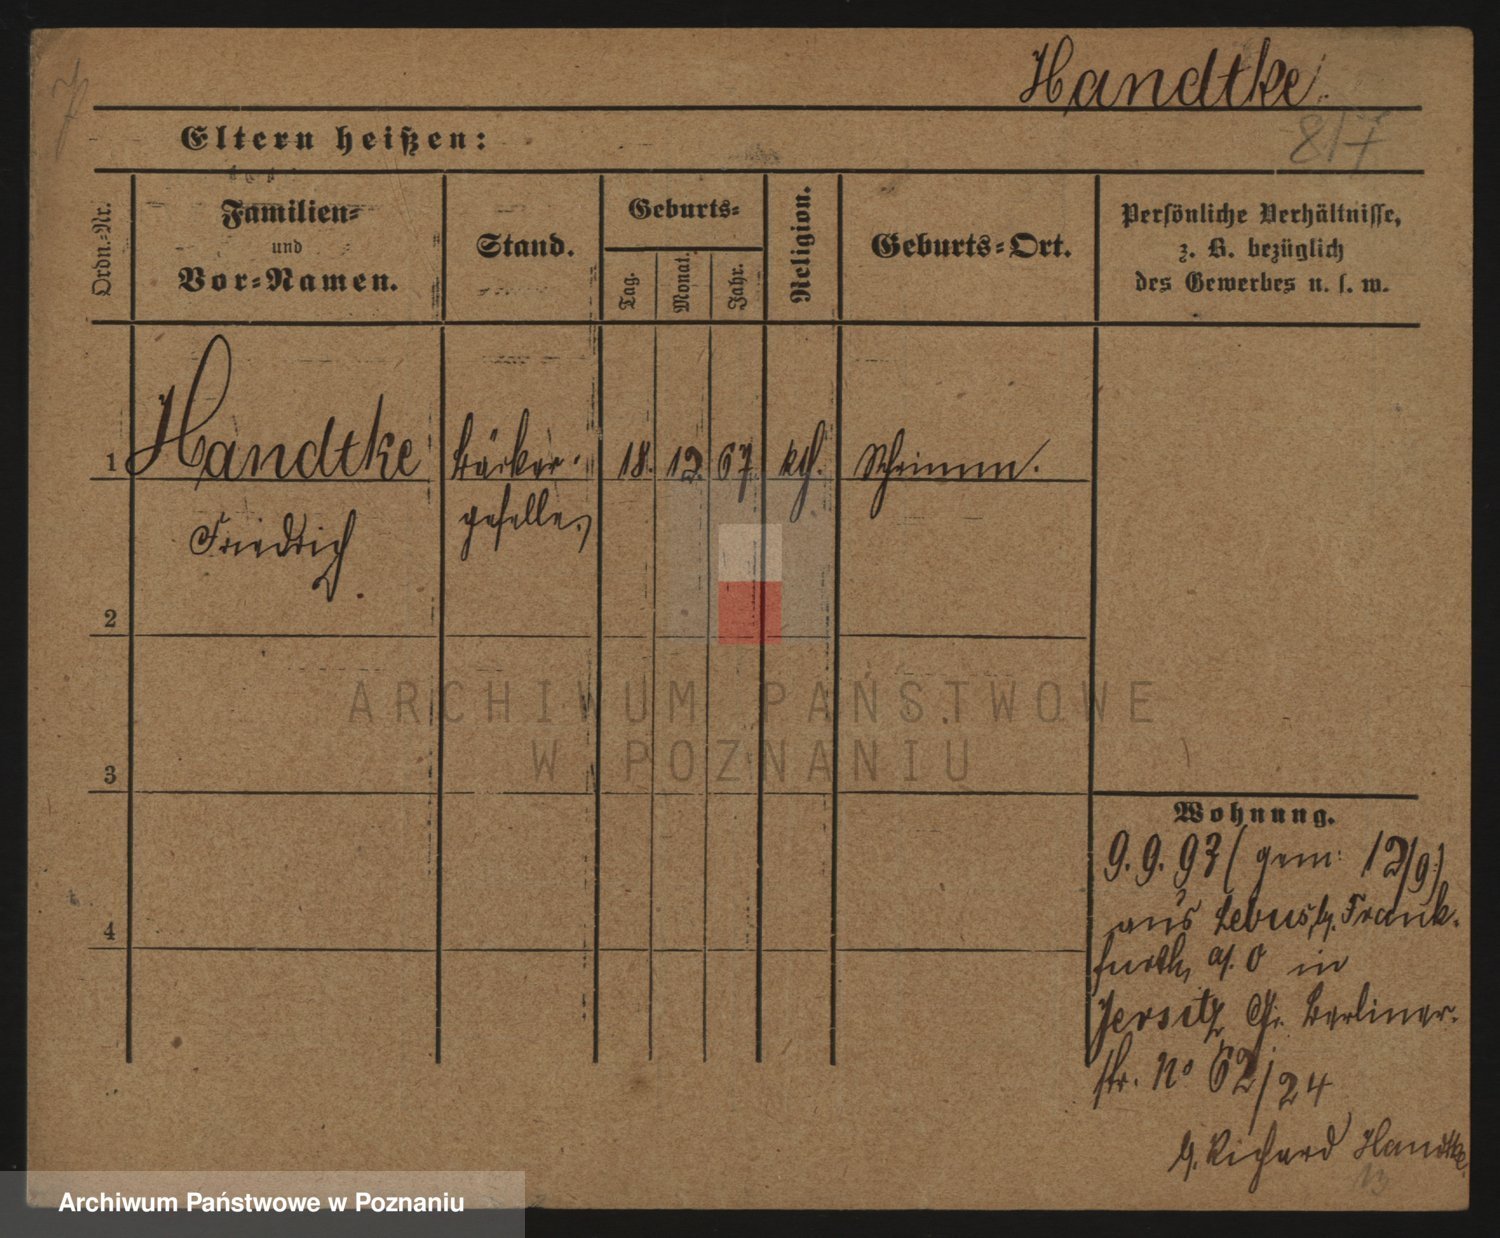 Handtke
8/7
Eltern heißen:
Ordn.-Nr.
Familien-
und
Vor-Namen.
Stand.
Geburts-
Tag.
Monat.
Jahr.
Religion.
Geburts-Ort.
Persönliche Verhältnisse,
z. B. bezüglich
des Gewerbes u. s. w.
1
Handtke
Friedrich
Bäcker-
geselle
18. 12. 67
Schrimm.
2
3
4
ARCHIWUM PAŃSTWOWE
W POZNANIU
Wohnung.
9. 9. 93 (gem: 12/9)
aus Lebus, b. Frank-
furth a/ O in
Jersitz Gr. Berliner-
str. No 62/24
b. Richard Handtke
13
Archiwum Państwowe w Poznaniu